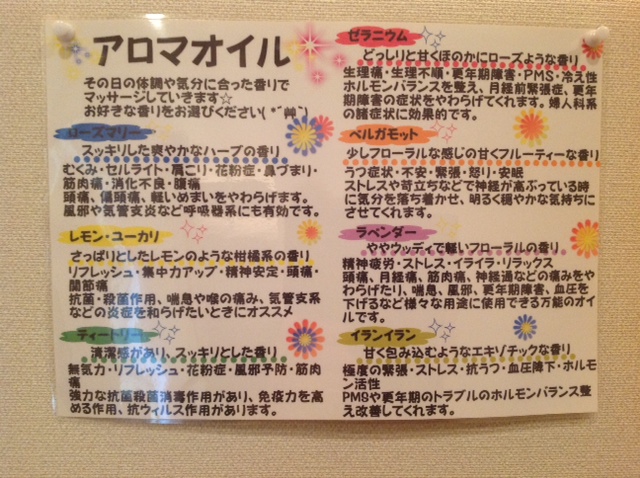 アロマオイル
その日の体調や気分に合った香りで
マッサージしていきます☆
お好きな香りをお選びください(*´艸`)
ローズマリー
スッキリした爽やかなハーブの香り
むくみ・セルライト・肩こり・花粉症・鼻づまり・
筋肉痛・消化不良・腹痛
頭痛、偏頭痛、軽いめまいをやわらげます。
風邪や気管支炎など呼吸器系にも有効です。
レモン・ユーカリ
さっぱりとしたレモンのような柑橘系の香り
リフレッシュ・集中力アップ・精神安定・頭痛・
関節痛
抗菌・殺菌作用、喘息や喉の痛み、気管支系
などの炎症を和らげたいときにオススメ
ティートリー
清潔感があり、スッキリとした香り
無気力・リフレッシュ・花粉症・風邪予防・筋肉
痛
強力な抗菌殺菌消毒作用があり、免疫力を高
める作用、抗ウィルス作用があります。
ゼラニウム
どっしりと甘くほのかにローズような香り
生理痛・生理不順・更年期障害・PMS・冷え性
ホルモンバランスを整え、月経前緊張症、更年
期障害の症状をやわらげてくれます。婦人科系
の諸症状に効果的です。
ベルガモット
少しフローラルな感じの甘くフルーティーな香り
うつ症状・不安・緊張・怒り・安眠
ストレスや苛立ちなどで神経が高ぶっている時
に気分を落ち着かせ、明るく穏やかな気持ちに
させてくれます。
ラベンダー
ややウッディで軽いフローラルの香り
精神疲労・ストレス・イライラ・リラックス
頭痛、月経痛、筋肉痛、神経痛などの痛みをや
わらげたり、喘息、風邪、更年期障害、血圧を
下げるなど様々な用途に使用できる万能のオイ
ルです。
イランイラン
甘く包み込むようなエキゾチックな香り
極度の緊張・ストレス・抗うつ・血圧降下・ホルモ
ン活性
PMSや更年期のトラブルのホルモンバランス整
え改善してくれます。